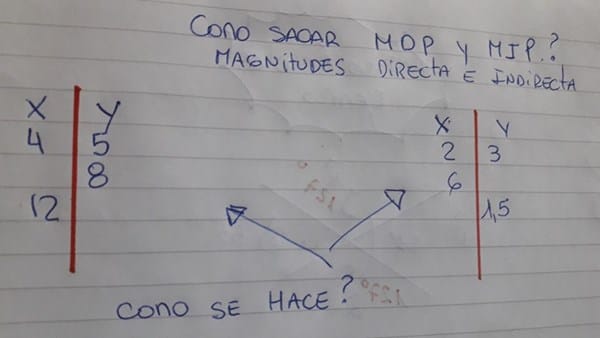 COMO SACAR MDP Y MIP.?
MAGNITUDES DIRECTA E INDIRECTA
X Y
4 5
8
12
X Y
2 3
6
1,5
COMO SE HACE?